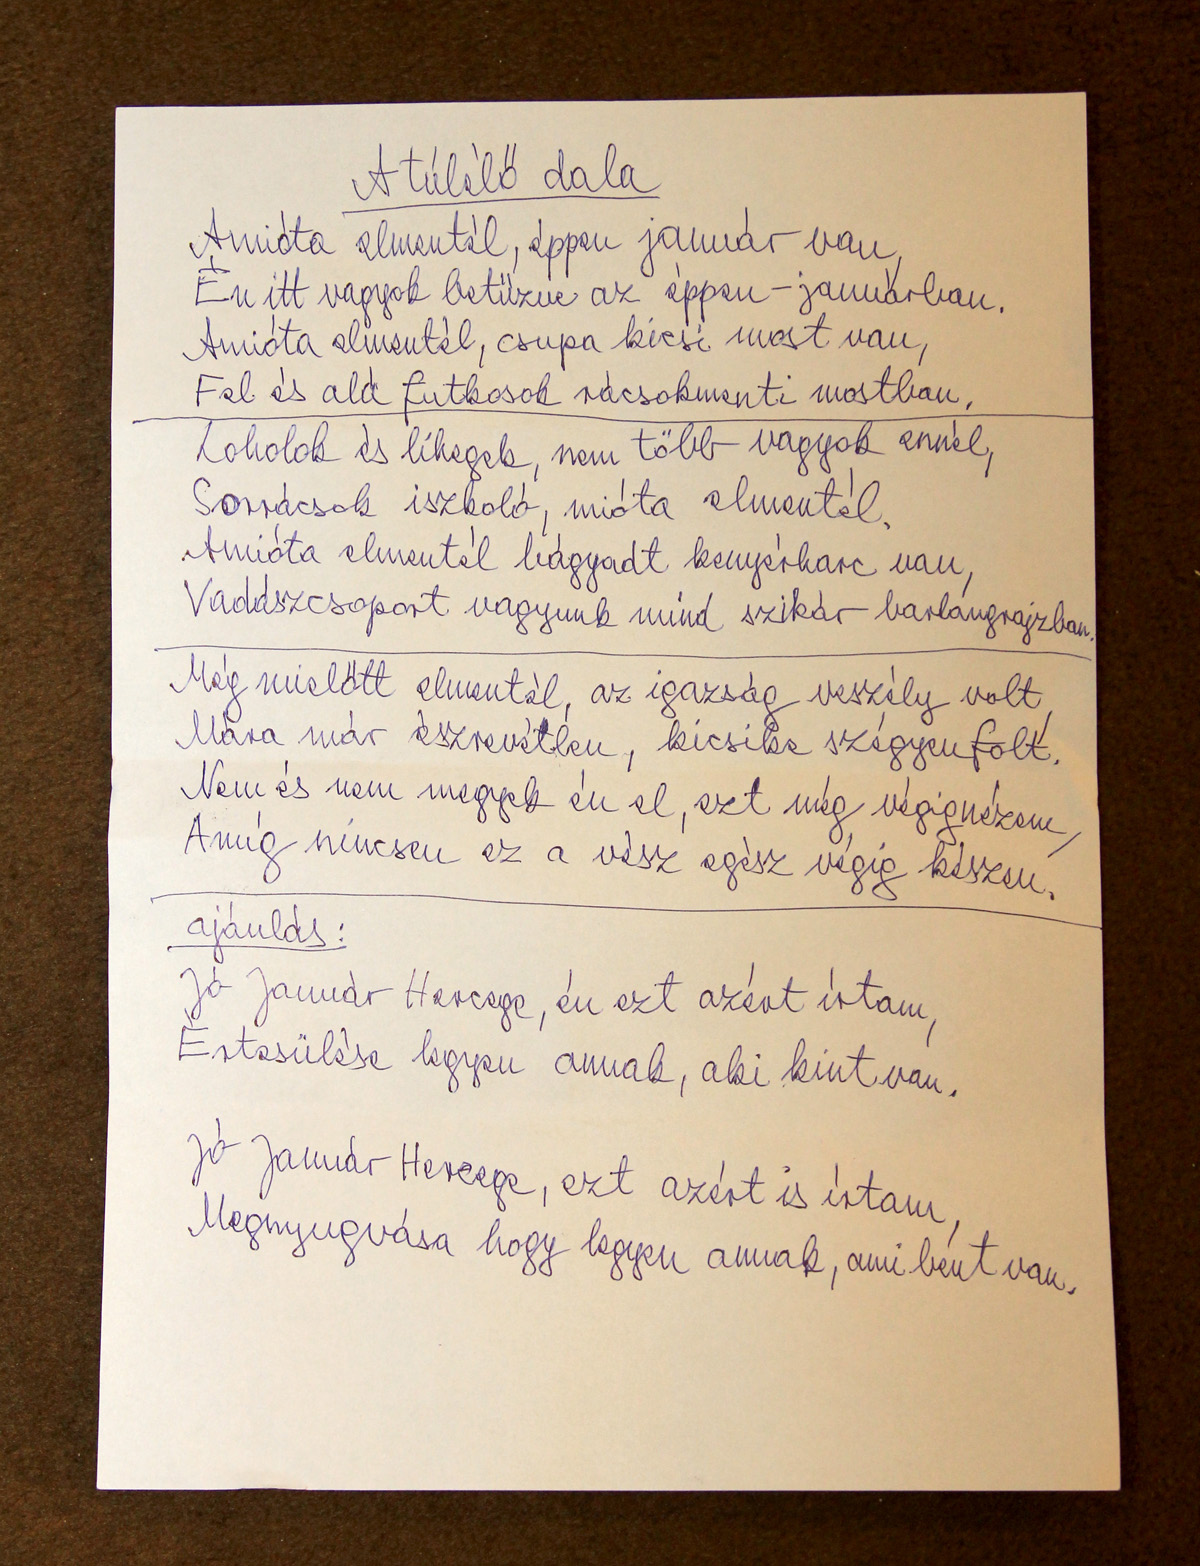 A túlélő dala
Amióta elmentél, éppen január van,
Én itt vagyok betűzve az éppen-januárban.
Amióta elmentél, csupa kicsi most van,
Fel és alá futkosok rácsokmenti mostban.
Loholok és lihegek, nem több vagyok ennél,
Sorrácsok iszkoló, mióta elmentél.
Amióta elmentél bágyadt kenyérharc van,
Vadászcsoport vagyunk mind szikár barlangrajzban.
Még mielőtt elmentél, az igazság veszély volt,
Mára már észrevétlen, kicsike szégyenfolt.
Nem és nem megyek én el, ezt még végignézem,
Amíg nincsen ez a vész egész végig készen.
ajánlás:
Jó Január Hercege, én ezt azért írtam,
Értesülése legyen annak, aki kint van.
Jó Január Hercege, ezt azért is írtam,
Megnyugvása hogy legyen annak, ami bent van.